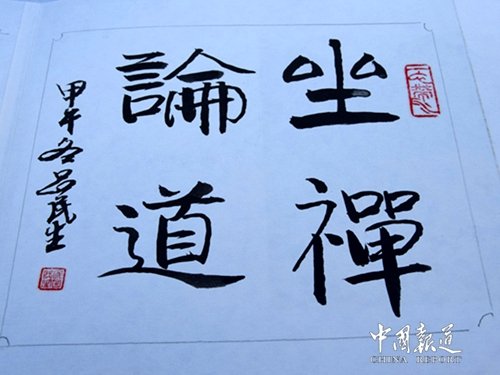 坐禪
論道
甲午冬吕民生
中国報道
CHINA REPORT